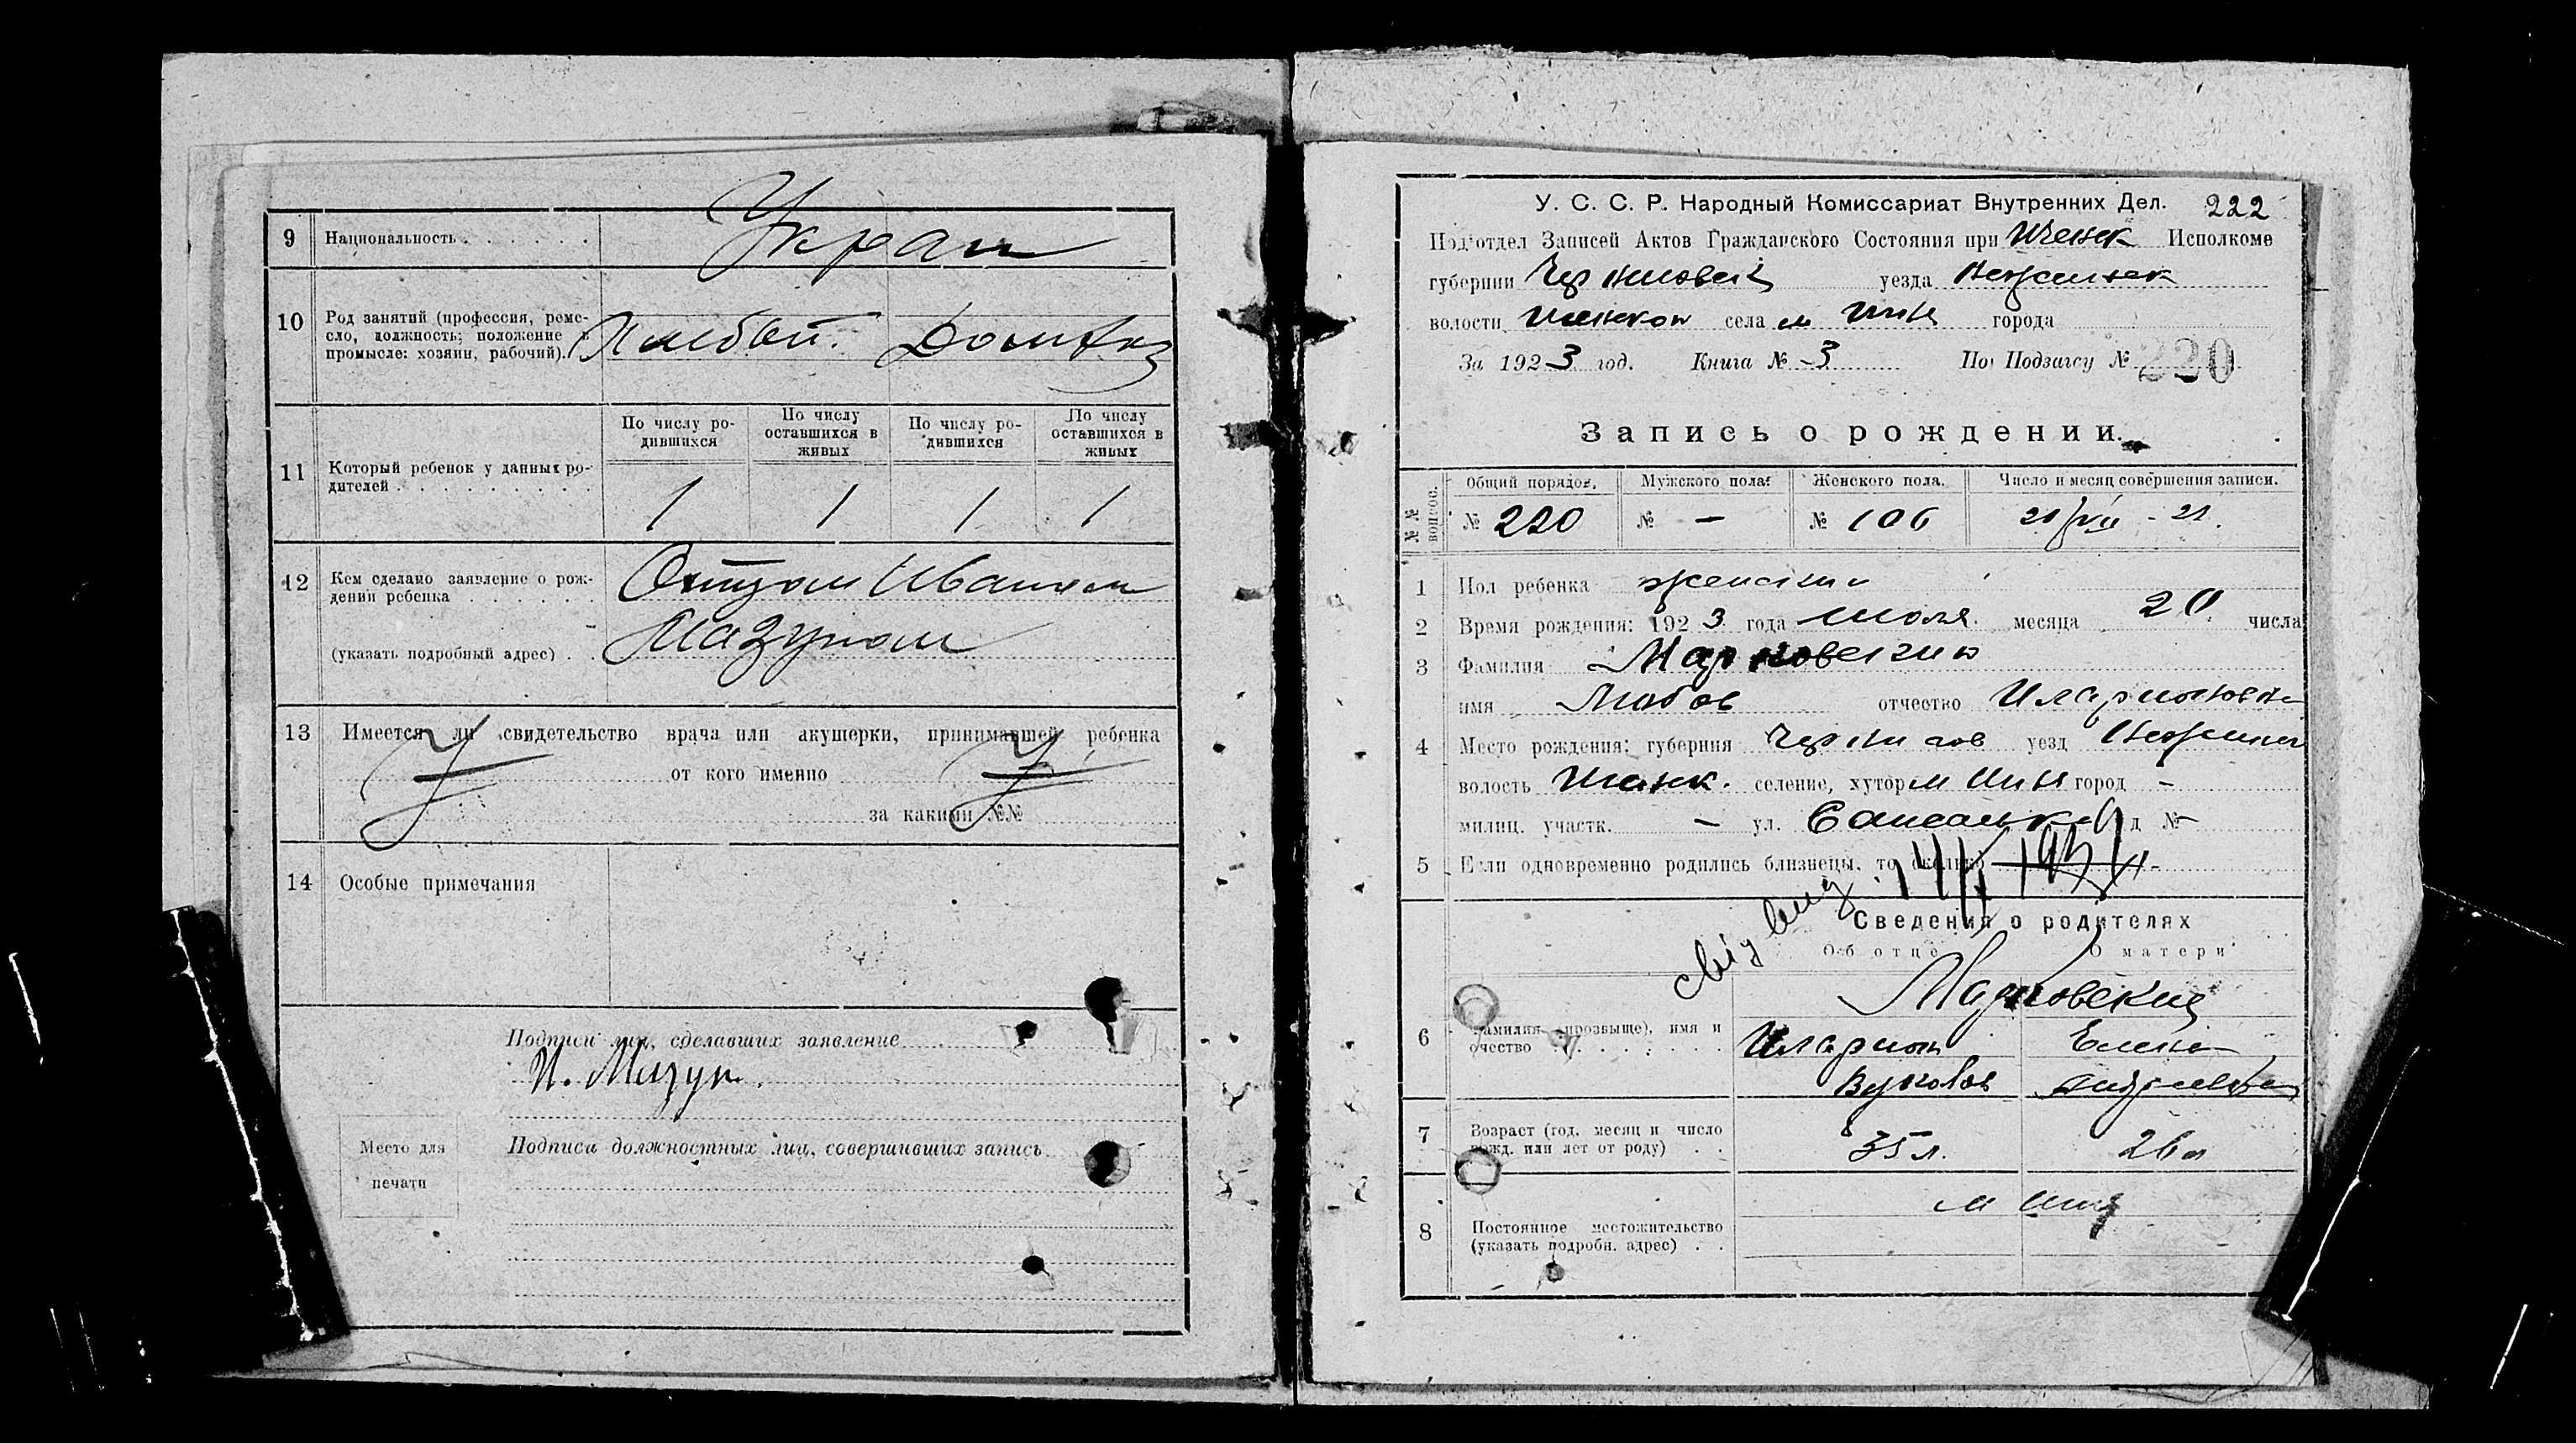 9 Национальность Украин
10 Род занятий (профессия, реме-
сло, должность; положение в
промысле: хозяин, рабочий). Хлебоп. Домохоз
По числу ро-
дившихся
По числу
оставшихся в
живых
По числу ро-
дившихся
По числу
оставшихся в
живых
11 Который ребенок у данных ро-
дителей 1 1 1 1
12 Кем сделано заявление о рож-
дении ребенка Отцом Иваном
(указать подробный адрес) Мазуном
13 Имеется ли свидетельство врача или акушерки, принимавшей ребенка
от кого именно
за какими №№
14 Особые примечания
Подписи лиц, сделавших заявление
И. Мазун.
Место для
печати
Подписи должностных лиц, совершивших запись
У. С. С. Р. Народный Комиссариат Внутренних Дел. 222
Под'отдел Записей Актов Гражданского Состояния при Исполкоме
губернии Черниговск уезда Нежинск
волости села м города
За 1923 год. Книга № 3 По Подзагсу № 220
Запись о рождении.
№№ вопрос.
Общий порядок. Мужского пола. Женского пола. Число и месяц совершения записи.
№ 220 № — № 106
1 Пол ребенка женский
2 Время рождения: 1923 года июля месяца 20 числа
3 Фамилия Марковский
имя Любов отчество Иларионовна
4 Место рождения: губерния Чернигов уезд Нежинск
волость селение, хутор м город -
милиц. участк. - ул. д № -
5 Если одновременно родились близнецы, то сколько
Сведения о родителях
Об отце О матери
Марковские
6 Фамилия (прозвыще), имя и
очество Иларион Елена
7 Возраст (год, месяц и число
рожд. или лет от роду) 35 л. 26 л
8 Постоянное местожительство
(указать подробн. адрес)